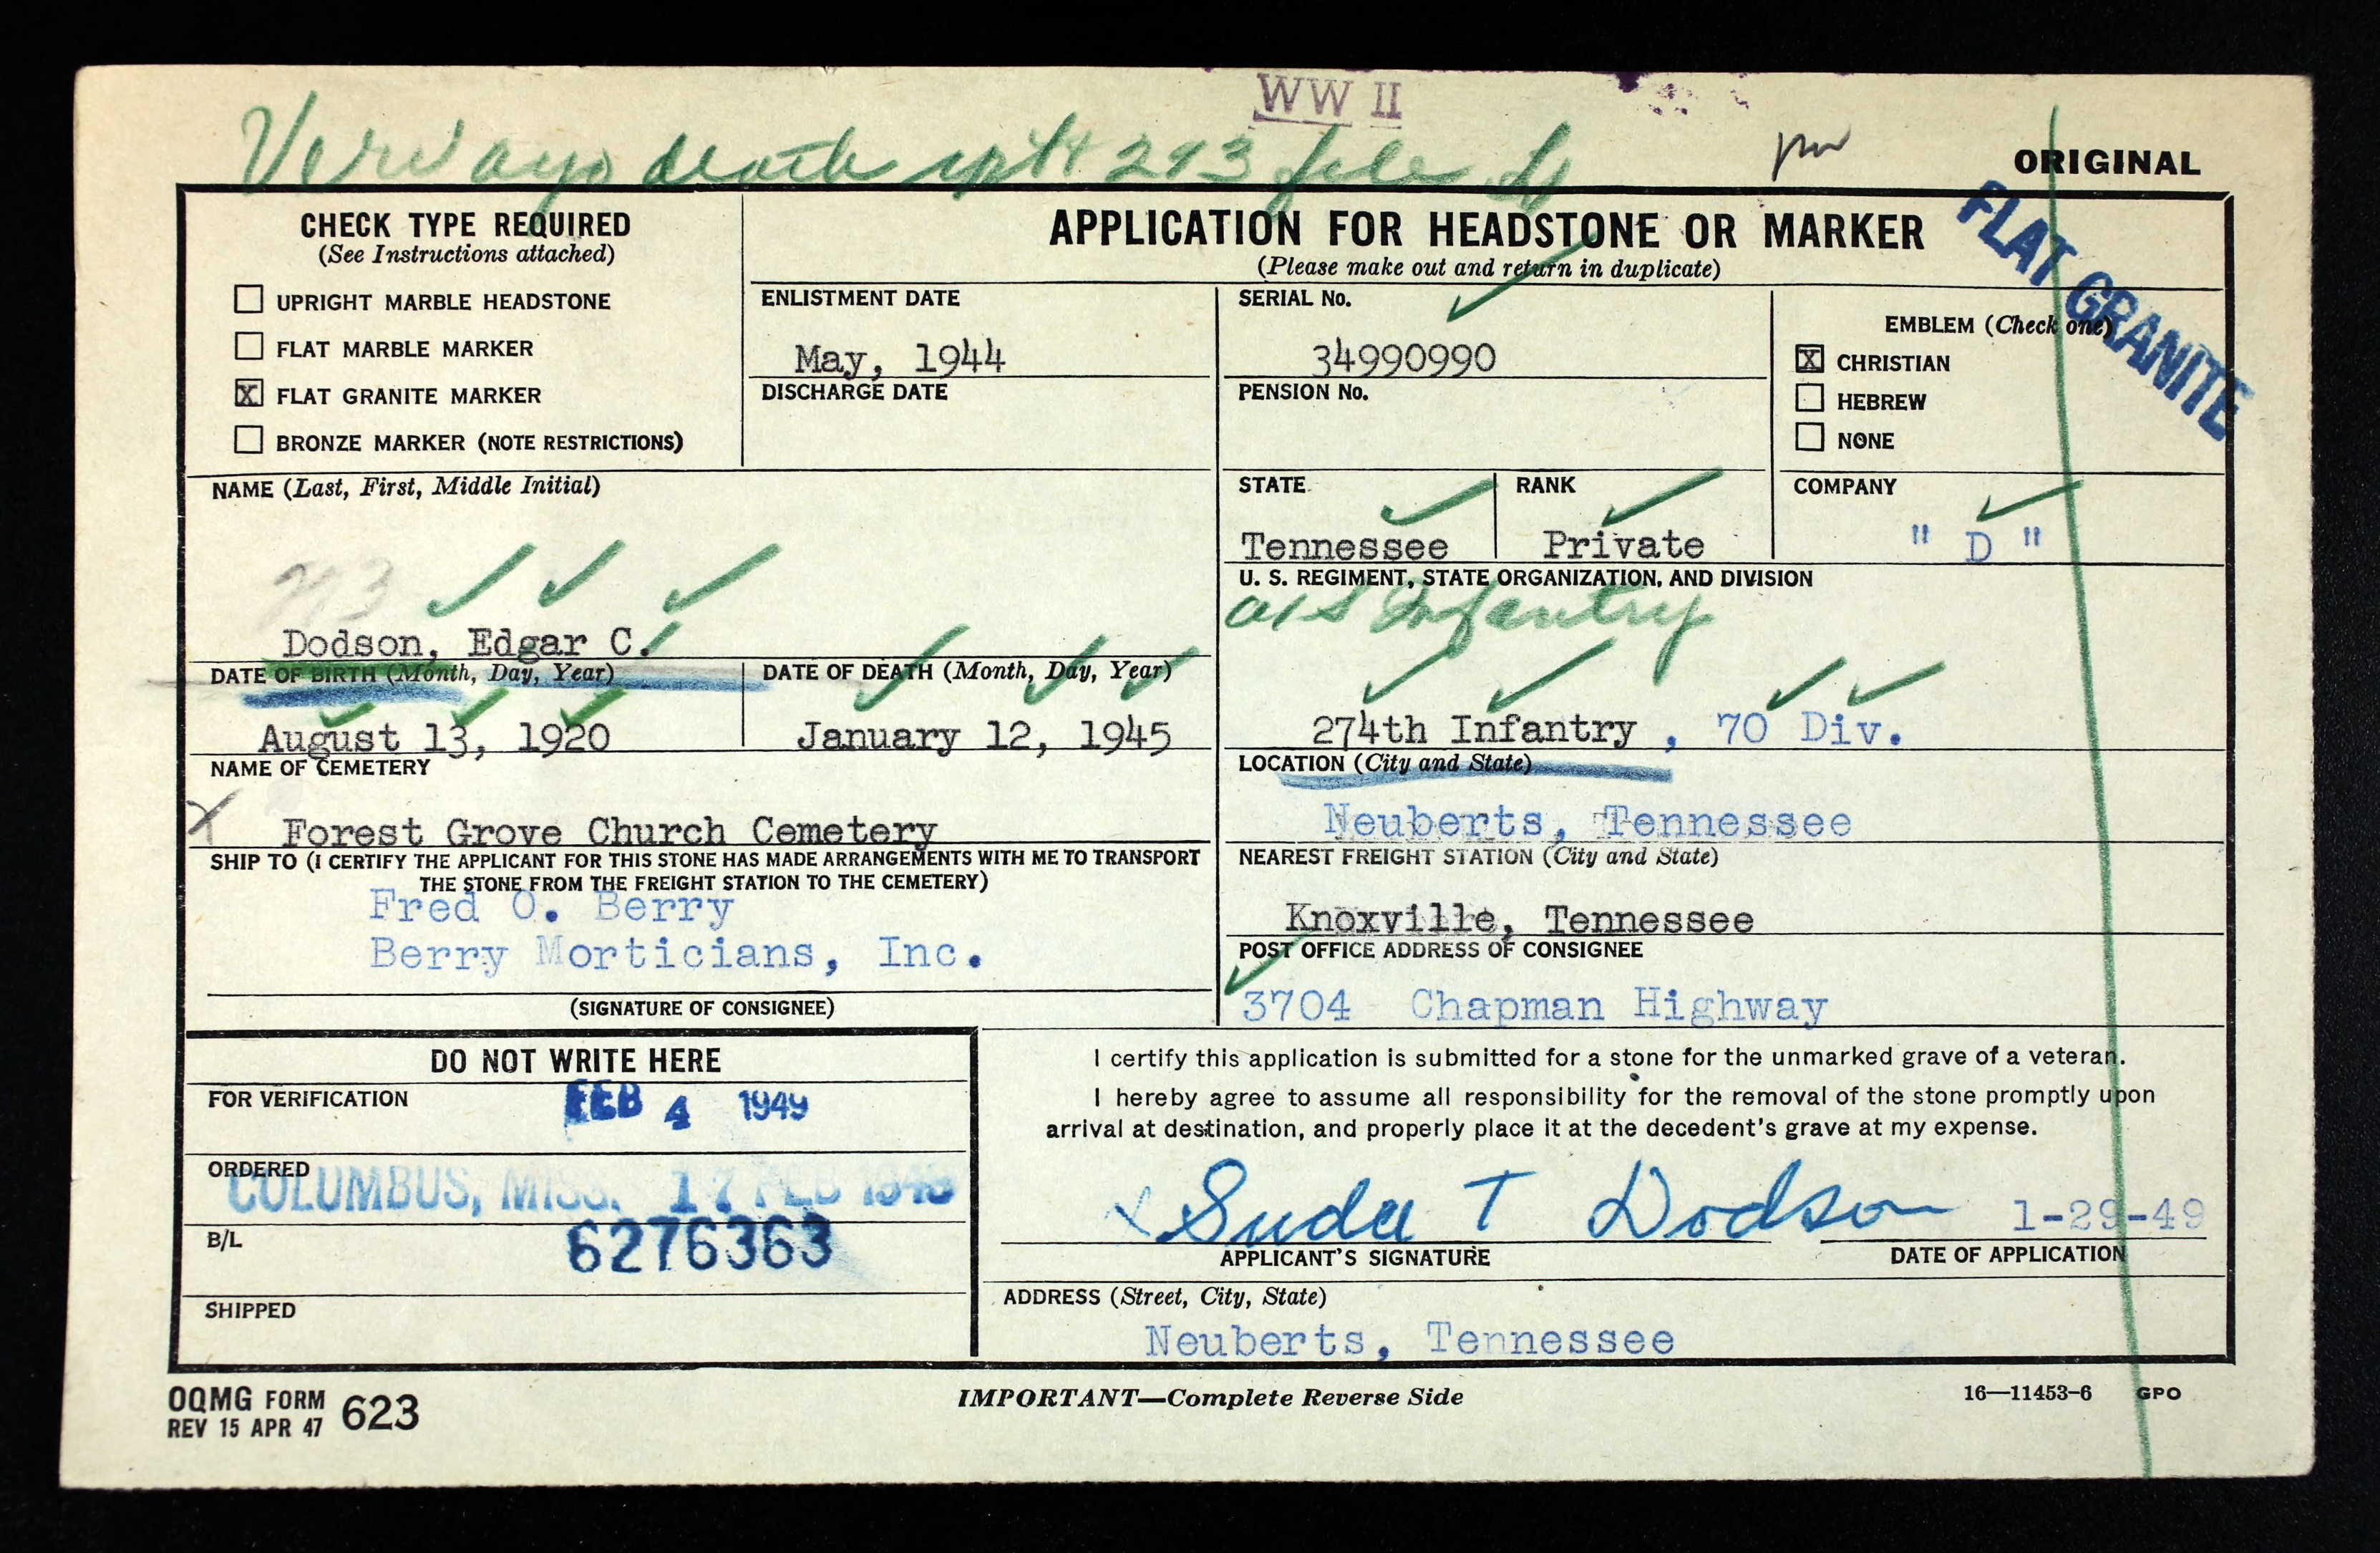 WW II
death rpt & 293 file
ORIGINAL
CHECK TYPE REQUIRED
(See Instructions attached)
UPRIGHT MARBLE HEADSTONE
FLAT MARBLE MARKER
X FLAT GRANITE MARKER
BRONZE MARKER (NOTE RESTRICTIONS)
APPLICATION FOR HEADSTONE OR MARKER
(Please make out and return in duplicate)
FLAT GRANITE
ENLISTMENT DATE
May, 1944
DISCHARGE DATE
SERIAL No.
34990990
PENSION No.
EMBLEM (Check one)
X CHRISTIAN
HEBREW
NONE
NAME (Last, First, Middle Initial)
293
Dodson, Edgar C.
STATE
Tennessee
RANK
Private
COMPANY
" D "
U. S. REGIMENT, STATE ORGANIZATION, AND DIVISION
Infantry
274th Infantry , 70 Div.
DATE OF BIRTH (Month, Day, Year)
August 13, 1920
DATE OF DEATH (Month, Day, Year)
January 12, 1945
NAME OF CEMETERY
X Forest Grove Church Cemetery
LOCATION (City and State)
Neuberts, Tennessee
SHIP TO (I CERTIFY THE APPLICANT FOR THIS STONE HAS MADE ARRANGEMENTS WITH ME TO TRANSPORT
THE STONE FROM THE FREIGHT STATION TO THE CEMETERY)
Fred O. Berry
Berry Morticians, Inc.
(SIGNATURE OF CONSIGNEE)
NEAREST FREIGHT STATION (City and State)
Knoxville, Tennessee
POST OFFICE ADDRESS OF CONSIGNEE
3704 Chapman Highway
DO NOT WRITE HERE
FOR VERIFICATION
FEB 4 1949
ORDERED
COLUMBUS, MISS. 17 FEB 1949
B/L
6276363
SHIPPED
I certify this application is submitted for a stone for the unmarked grave of a veteran.
I hereby agree to assume all responsibility for the removal of the stone promptly upon
arrival at destination, and properly place it at the decedent's grave at my expense.
X Suda T Dodson 1-29-49
APPLICANT'S SIGNATURE
DATE OF APPLICATION
ADDRESS (Street, City, State)
Neuberts, Tennessee
OQMG FORM 623
REV 15 APR 47
IMPORTANT—Complete Reverse Side
16—11453-6 GPO